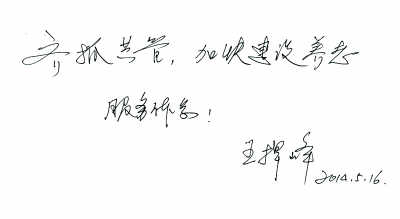 齐抓共管，加快建设养老
服务体系！
王辉峰
2014.5.16.